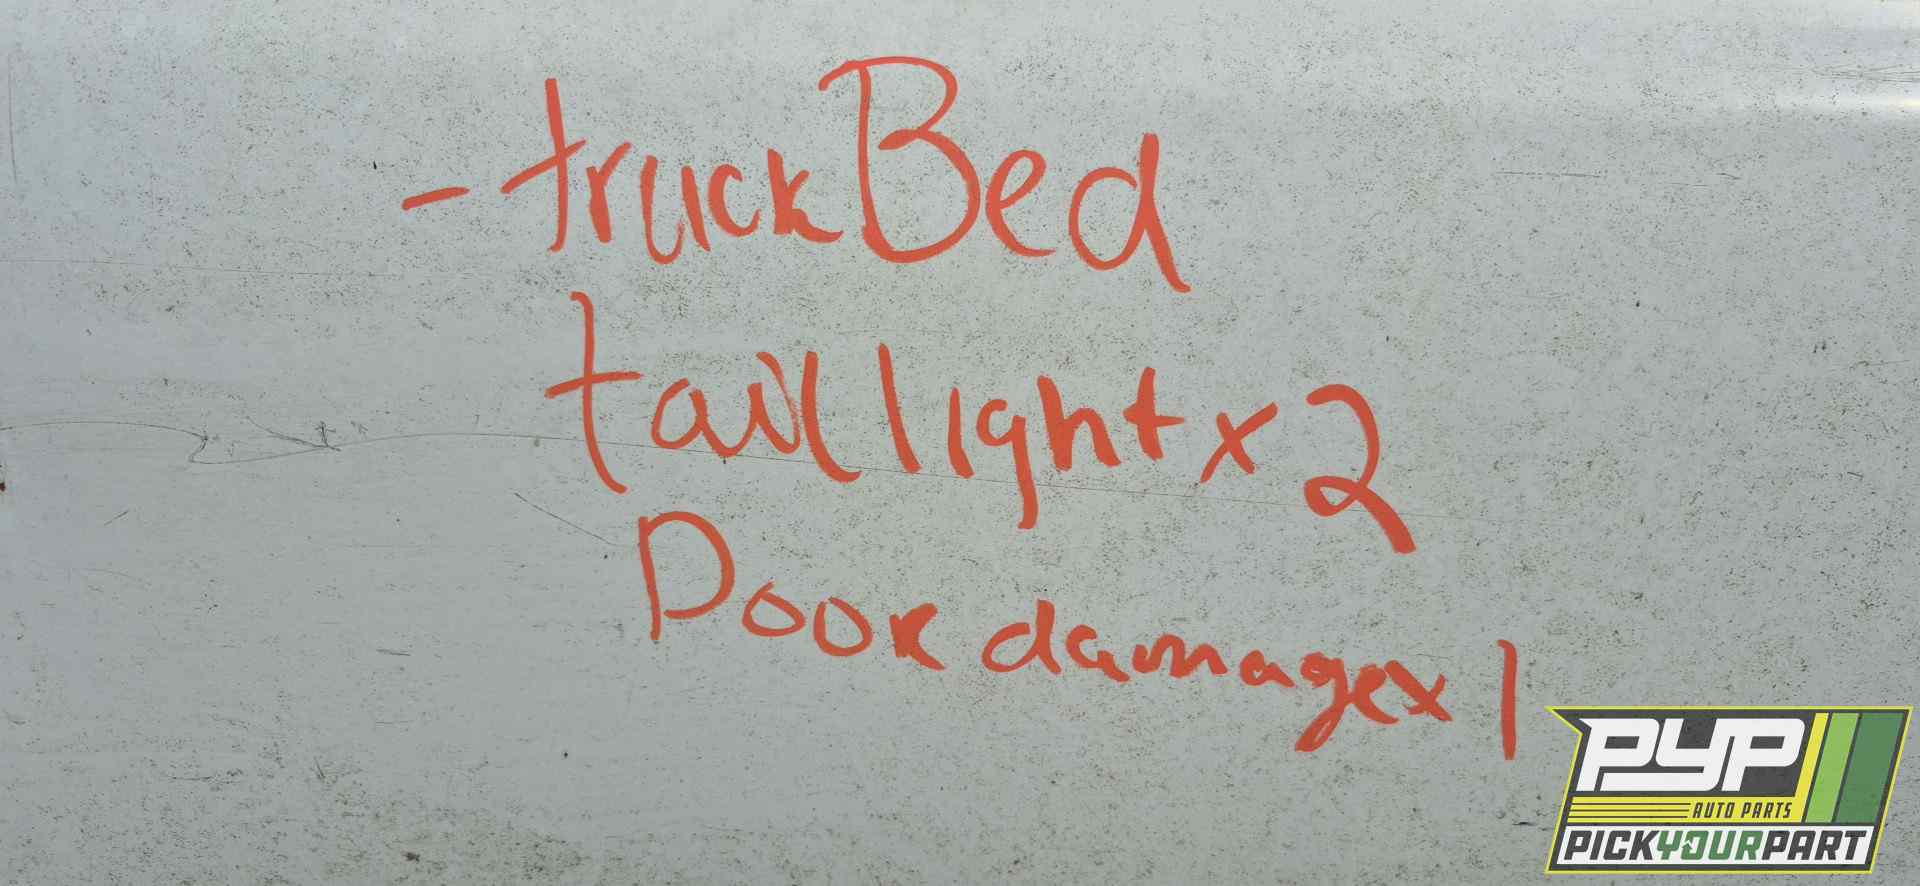 - truck Bed
tail light x 2
Door damage x 1
PYP
AUTO PARTS
PICKYOURPART